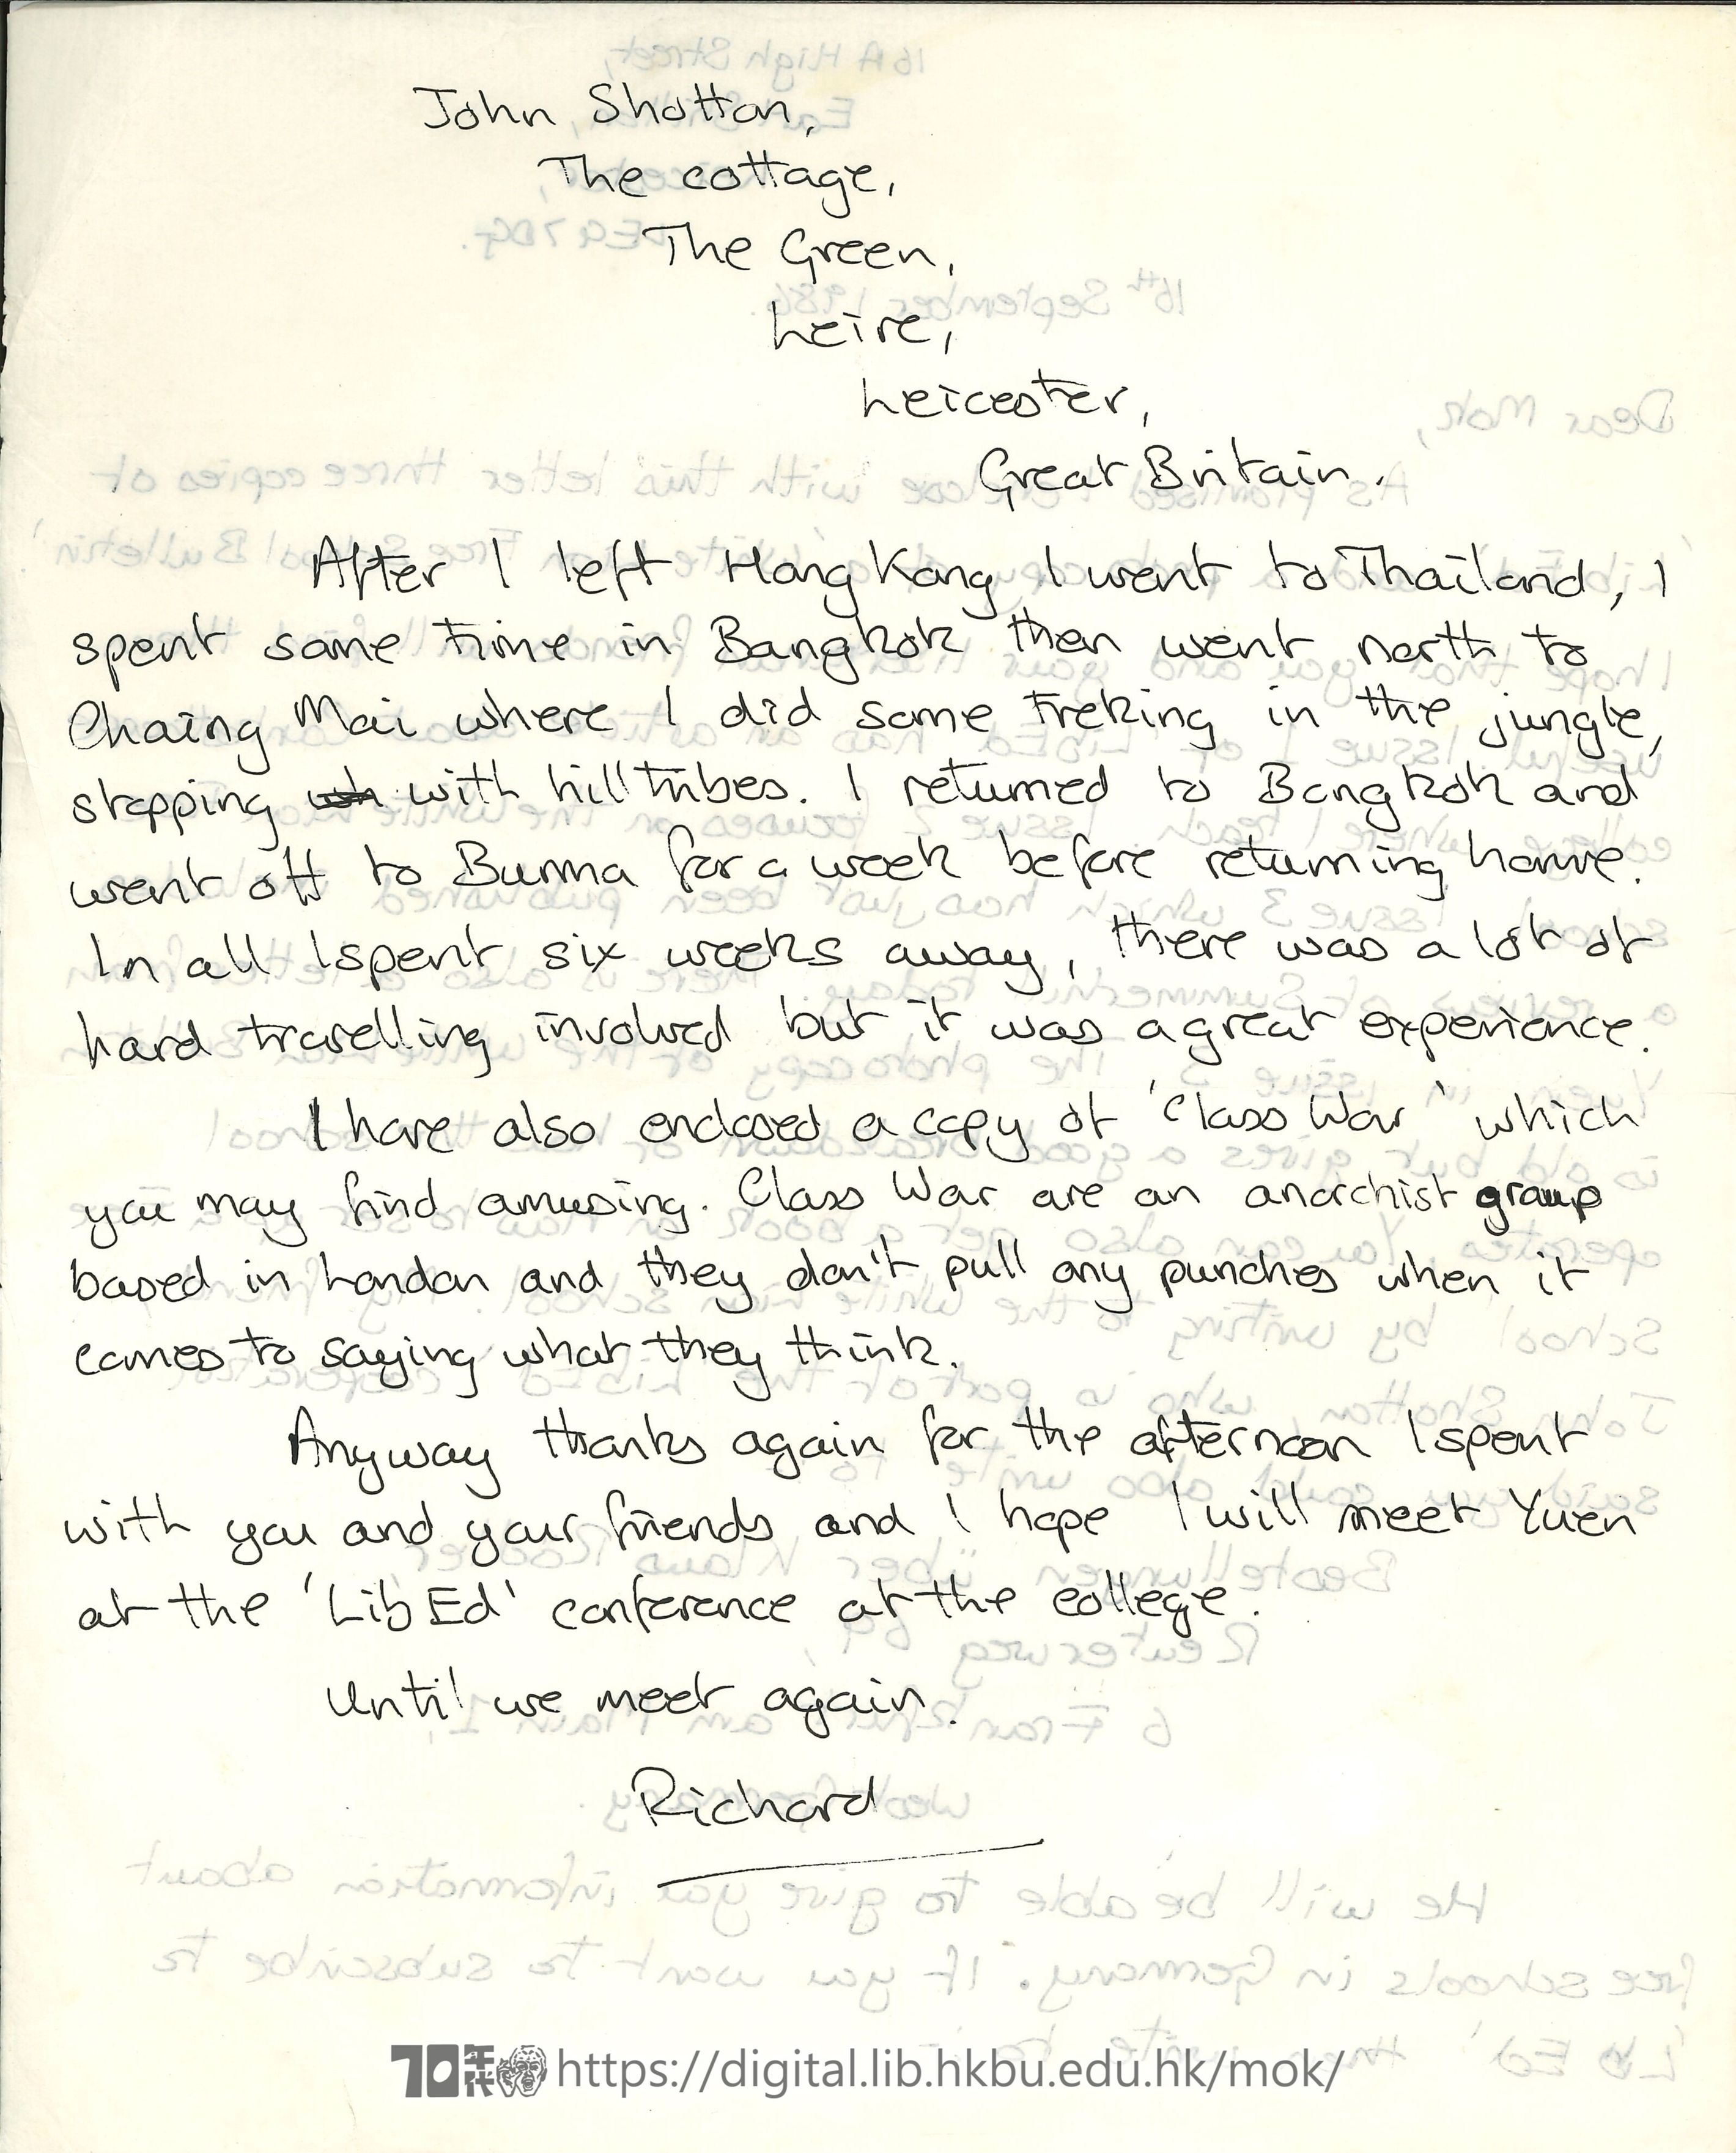 John Shotton,
The cottage,
The Green,
Leire,
Leicester,
Great Britain.
After I left Hong Kong I went to Thailand, I
spent some time in Bangkok then went north to
Chaing Mai where I did some treking in the jungle,
stopping with hill tribes. I returned to Bangkok and
went off to Burma for a week before returning home.
In all I spent six weeks away, there was a lot of
hard travelling involved but it was a great experience.
I have also enclosed a copy of 'Class War' which
you may find amusing. Class War are an anarchist group
based in London and they don't pull any punches when it
comes to saying what they think.
Anyway thanks again for the afternoon I spent
with you and your friends and I hope I will meet Yuen
at the 'Lib Ed' conference at the college.
Until we meet again.
Richard
70年代 https://digital.lib.hkbu.edu.hk/mok/